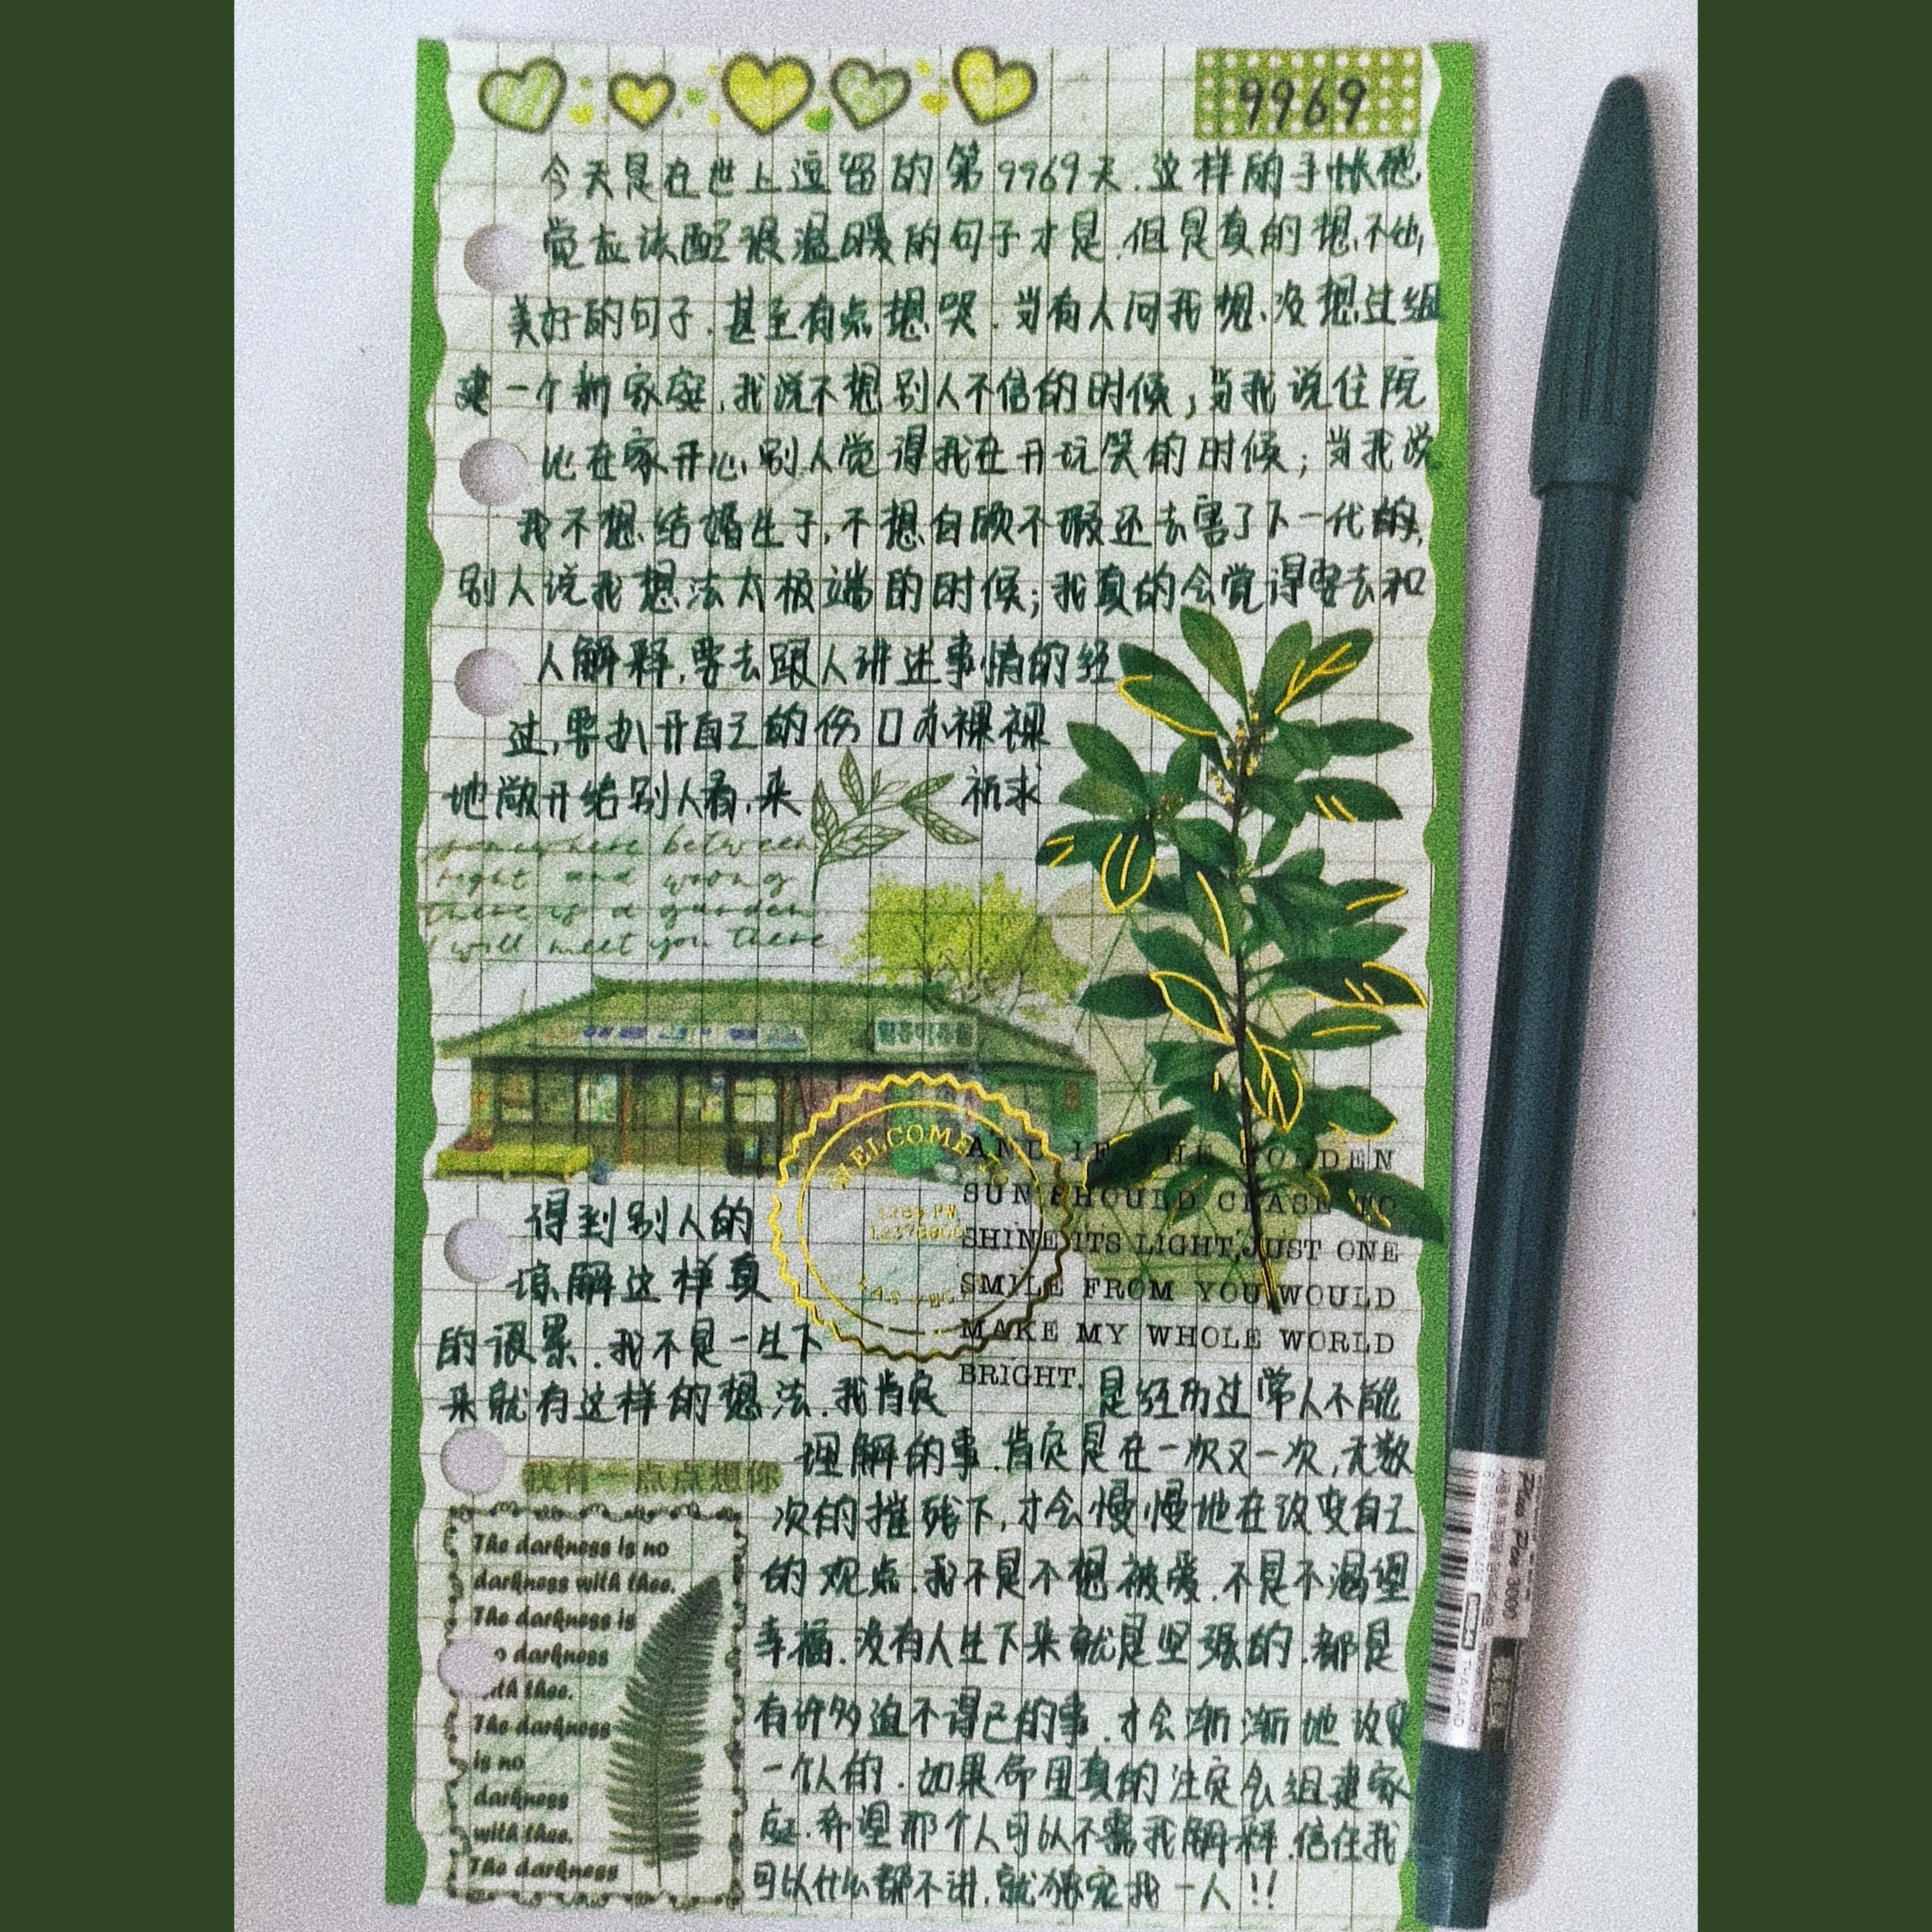 9969
今天是在世上逗留的第9969天.这样的手帐他
觉应该配很温暖的句子才是.但是真的想不出,
美好的句子.甚至有点想哭.当有人问我想没想过组
建一个新家庭,我说不想别人不信的时候;当我说住院
比在家开心.别人觉得我在开玩笑的时候;当我说
我不想结婚生子,不想自顾不暇还去害了下一代的,
别人说我想法太极端的时候;我真的会觉得要去和
人解释,要去跟人讲述事情的经
过,要扒开自己的伤口赤裸裸
地敞开给别人看,来 祈求
somewhere between
right and wrong
there is a garden
I will meet you there
WELCOME TO
AND IF THE GOLDEN
SUN SHOULD CEASE TO
SHINE ITS LIGHT, JUST ONE
SMILE FROM YOU WOULD
MAKE MY WHOLE WORLD
BRIGHT.
得到别人的
谅解这样真
的很累.我不是一生下
来就有这样的想法.我肯定 是经历过常人不能
理解的事.肯定是在一次又一次,无数
次的摧残下,才会慢慢地在改变自己
的观点.我不是不想被爱.不是不渴望
幸福.没有人生下来就是坚强的.都是
有许多迫不得已的事.才会渐渐地改变
一个人的.如果命里真的注定会组建家
庭.希望那个人可以不需我解释.信任我
可以什么都不讲.就独宠我一人!!
我有一点点想你
The darkness is no
darkness with thee.
The darkness is
o darkness
ith thee.
The darkness
is no
darkness
with thee.
The darkness
Plus Pen 3000
THAILAND